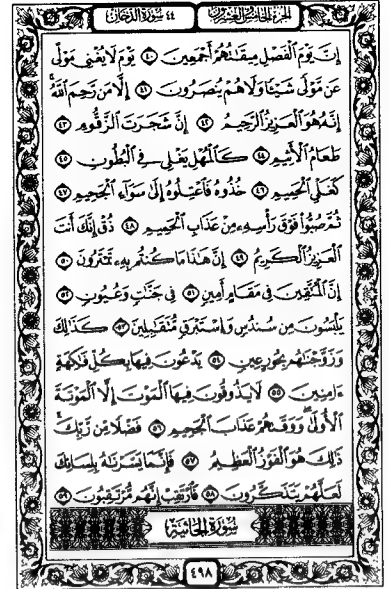 الجزء الخامس والعشرون ٤٤ سورة الدخان
إِنَّ يَوْمَ الْفَصْلِ مِيقَاتُهُمْ أَجْمَعِينَ ٤٠ يَوْمَ لَا يُغْنِي مَوْلًى
عَن مَّوْلًى شَيْئًا وَلَا هُمْ يُنصَرُونَ ٤١ إِلَّا مَن رَّحِمَ اللَّهُ
إِنَّهُ هُوَ الْعَزِيزُ الرَّحِيمُ ٤٢ إِنَّ شَجَرَتَ الزَّقُّومِ ٤٣
طَعَامُ الْأَثِيمِ ٤٤ كَالْمُهْلِ يَغْلِي فِي الْبُطُونِ ٤٥
كَغَلْيِ الْحَمِيمِ ٤٦ خُذُوهُ فَاعْتِلُوهُ إِلَى سَوَاءِ الْجَحِيمِ ٤٧
ثُمَّ صُبُّوا فَوْقَ رَأْسِهِ مِنْ عَذَابِ الْحَمِيمِ ٤٨ ذُقْ إِنَّكَ أَنتَ
الْعَزِيزُ الْكَرِيمُ ٤٩ إِنَّ هَذَا مَا كُنتُم بِهِ تَمْتَرُونَ ٥٠
إِنَّ الْمُتَّقِينَ فِي مَقَامٍ أَمِينٍ ٥١ فِي جَنَّتٍ وَعُيُونٍ ٥٢
يَلْبَسُونَ مِن سُندُسٍ وَإِسْتَبْرَقٍ مُّتَقَبِلِينَ ٥٣ كَذَلِكَ
وَزَوَّجْنَهُم بِحُورٍ عِينٍ ٥٤ يَدْعُونَ فِيهَا بِكُلِّ فَكِهَةٍ
ءَامِنِينَ ٥٥ لَا يَذُوقُونَ فِيهَا الْمَوْتَ إِلَّا الْمَوْتَةَ
الْأُولَى وَوَقَىهُمْ عَذَابَ الْجَحِيمِ ٥٦ فَضْلًا مِّن رَّبِّكَ
ذَلِكَ هُوَ الْفَوْزُ الْعَظِيمُ ٥٧ فَإِنَّمَا يَسَّرْنَهُ بِلِسَانِكَ
لَعَلَّهُمْ يَتَذَكَّرُونَ ٥٨ فَارْتَقِبْ إِنَّهُم مُّرْتَقِبُونَ ٥٩
سُورَةُ الْجَاثِيَةِ
٤٩٨